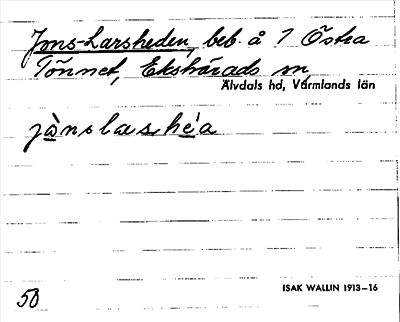 Jons-Larsheden, beb. å 7 Östra
Tönnet, Ekshärads sn,
Älvdals hd, Värmlands län
jànslæshéa
ISAK WALLIN 1913–16
50